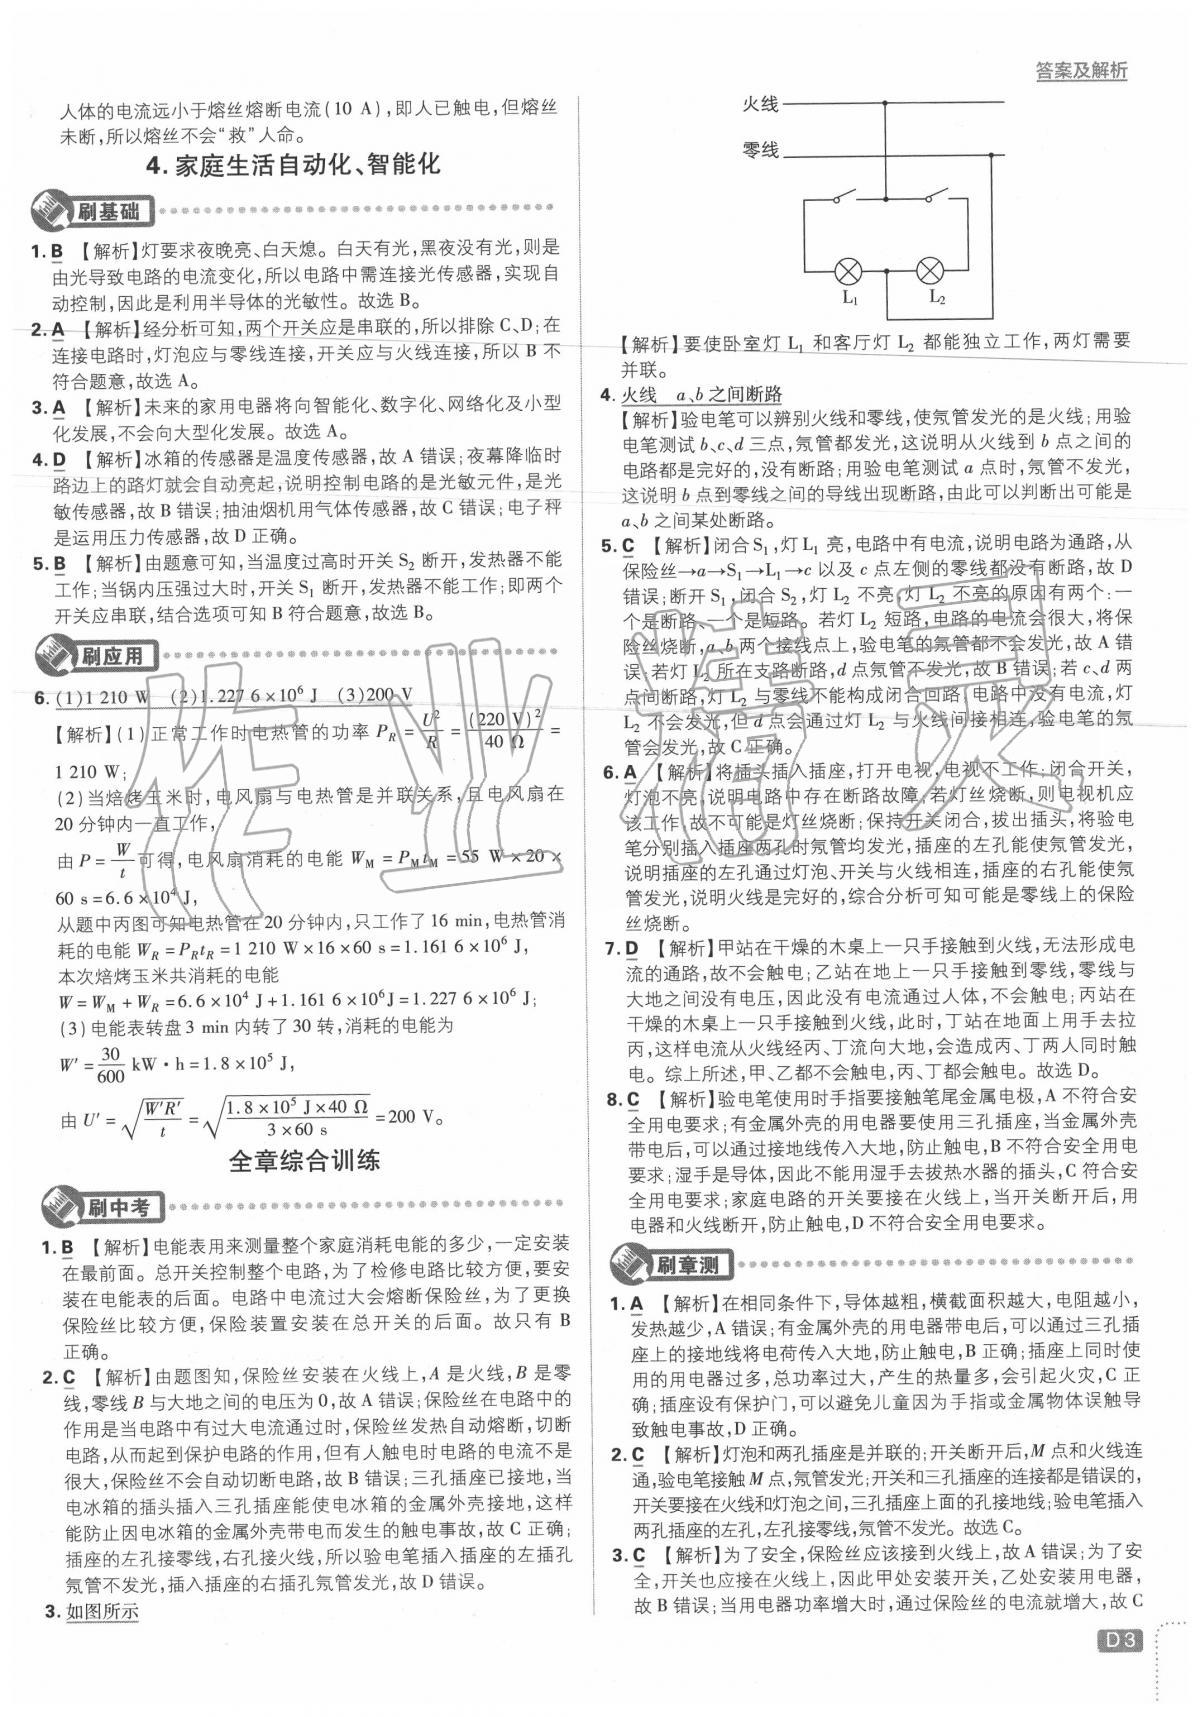 答案及解析
人体的电流远小于熔丝熔断电流(10 A),即人已触电,但熔丝
未断,所以熔丝不会“救”人命。
4.家庭生活自动化、智能化
刷基础
1.B 【解析】灯要求夜晚亮、白天熄。白天有光,黑夜没有光,则是
由光导致电路的电流变化,所以电路中需连接光传感器,实现自
动控制,因此是利用半导体的光敏性。故选 B。
2.A 【解析】经分析可知,两个开关应是串联的,所以排除 C、D;在
连接电路时,灯泡应与零线连接,开关应与火线连接,所以 B 不
符合题意,故选 A。
3.A 【解析】未来的家用电器将向智能化、数字化、网络化及小型
化发展,不会向大型化发展。故选 A。
4.D 【解析】冰箱的传感器是温度传感器,故 A 错误;夜幕降临时
路边上的路灯就会自动亮起,说明控制电路的是光敏元件,是光
敏传感器,故 B 错误;抽油烟机用气体传感器,故 C 错误;电子秤
是运用压力传感器,故 D 正确。
5.B 【解析】由题意可知,当温度过高时开关 S₂ 断开,发热器不能
工作;当锅内压强过大时,开关 S₁ 断开,发热器不能工作;即两个
开关应串联,结合选项可知 B 符合题意,故选 B。
刷应用
6.(1)1 210 W (2)1.227 6×10⁶ J (3)200 V
【解析】(1)正常工作时电热管的功率 P_R = U²/R = (220 V)²/40 Ω =
1 210 W;
(2)当焙烤玉米时,电风扇与电热管是并联关系,且电风扇在
20 分钟内一直工作,
由 P = W/t 可得,电风扇消耗的电能 W_M = P_M t_M = 55 W×20×
60 s=6.6×10⁴ J,
从题中丙图可知电热管在 20 分钟内,只工作了 16 min,电热管消
耗的电能 W_R = P_R t_R = 1 210 W×16×60 s=1.161 6×10⁶ J,
本次焙烤玉米共消耗的电能
W = W_M + W_R = 6.6×10⁴ J+1.161 6×10⁶J=1.227 6×10⁶ J;
(3)电能表转盘 3 min 内转了 30 转,消耗的电能为
W′ = 30/600 kW·h=1.8×10⁵ J,
由 U′ = √(W′R′/t) = √(1.8×10⁵ J×40 Ω/3×60 s) = 200 V。
全章综合训练
刷中考
1.B 【解析】电能表用来测量整个家庭消耗电能的多少,一定安装
在最前面。总开关控制整个电路,为了检修电路比较方便,要安
装在电能表的后面。电路中电流过大会熔断保险丝,为了更换
保险丝比较方便,保险装置安装在总开关的后面。故只有 B
正确。
2.C 【解析】由题图知,保险丝安装在火线上,A 是火线,B 是零
线,零线 B 与大地之间的电压为 0,故 A 错误;保险丝在电路中的
作用是当电路中有过大电流通过时,保险丝发热自动熔断,切断
电路,从而起到保护电路的作用,但有人触电时电路的电流不是
很大,保险丝不会自动切断电路,故 B 错误;三孔插座已接地,当
电冰箱的插头插入三孔插座能使电冰箱的金属外壳接地,这样
能防止因电冰箱的金属外壳带电而发生的触电事故,故 C 正确;
插座的左孔接零线,右孔接火线,所以验电笔插入插座的左插孔
氖管不发光,插入插座的右插孔氖管发光,故 D 错误。
3.如图所示
火线
零线
L₁ L₂
【解析】要使卧室灯 L₁ 和客厅灯 L₂ 都能独立工作,两灯需要
并联。
4.火线 a、b 之间断路
【解析】验电笔可以辨别火线和零线,使氖管发光的是火线;用验
电笔测试 b、c、d 三点,氖管都发光,这说明从火线到 b 点之间的
电路都是完好的,没有断路;用验电笔测试 a 点时,氖管不发光,
这说明 b 点到零线之间的导线出现断路,由此可以判断出可能是
a、b 之间某处断路。
5.C 【解析】闭合S₁,灯L₁ 亮,电路中有电流,说明电路为通路,从
保险丝→a→S₁→L₁→c 以及 c 点左侧的零线都没有断路,故 D
错误;断开 S₁,闭合 S₂,灯 L₂ 不亮,灯 L₂ 不亮的原因有两个:一
个是断路、一个是短路。若灯 L₂ 短路,电路的电流会很大,将保
险丝烧断,a、b 两个接线点上,验电笔的氖管都不会发光,故 A 错
误;若灯 L₂ 所在支路断路,d 点氖管不发光,故 B 错误;若 c、d 两
点间断路,灯 L₂ 与零线不能构成闭合回路,电路中没有电流,灯
L₂ 不会发光,但 d 点会通过灯 L₂ 与火线间接相连,验电笔的氖
管会发光,故 C 正确。
6.A 【解析】将插头插入插座,打开电视,电视不工作;闭合开关,
灯泡不亮,说明电路中存在断路故障,若灯丝烧断,则电视机应
该工作,故不可能是灯丝烧断;保持开关闭合,拔出插头,将验电
笔分别插入插座两孔时氖管均发光,插座的左孔能使氖管发光,
说明插座的左孔通过灯泡、开关与火线相连,插座的右孔能使氖
管发光,说明火线是完好的,综合分析可知可能是零线上的保险
丝烧断。
7.D 【解析】甲站在干燥的木桌上一只手接触到火线,无法形成电
流的通路,故不会触电;乙站在地上一只手接触到零线,零线与
大地之间没有电压,因此没有电流通过人体,不会触电;丙站在
干燥的木桌上一只手接触到火线,此时,丁站在地面上用手去拉
丙,这样电流从火线经丙、丁流向大地,会造成丙、丁两人同时触
电。综上所述,甲、乙都不会触电,丙、丁都会触电。故选 D。
8.C 【解析】验电笔使用时手指要接触笔尾金属电极,A 不符合安
全用电要求;有金属外壳的用电器要使用三孔插座,当金属外壳
带电后,可以通过接地线传入大地,防止触电,B 不符合安全用电
要求;湿手是导体,因此不能用湿手去拔热水器的插头,C 符合安
全用电要求;家庭电路的开关要接在火线上,当开关断开后,用
电器和火线断开,防止触电,D 不符合安全用电要求。
刷章测
1.A 【解析】在相同条件下,导体越粗,横截面积越大,电阻越小,
发热越少,A 错误;有金属外壳的用电器带电后,可以通过三孔插
座上的接地线将电荷传入大地,防止触电,B 正确;插座上同时使
用的用电器过多,总功率过大,产生的热量多,会引起火灾,C 正
确;插座设有保护门,可以避免儿童因为手指或金属物体误触导
致触电事故,D 正确。
2.C 【解析】灯泡和两孔插座是并联的;开关断开后,M 点和火线连
通,验电笔接触 M 点,氖管发光;开关和三孔插座的连接都是错误的,
开关要接在火线和灯泡之间,三孔插座上面的孔接地线;验电笔插入
两孔插座的左孔,左孔接零线,氖管不发光。故选 C。
3.C 【解析】为了安全,保险丝应该接到火线上,故 A 错误;为了安
全,开关也应接在火线上,因此甲处安装开关,乙处安装用电器,
故 B 错误;当用电器功率增大时,通过保险丝的电流就增大,故 C
D3
作业精灵